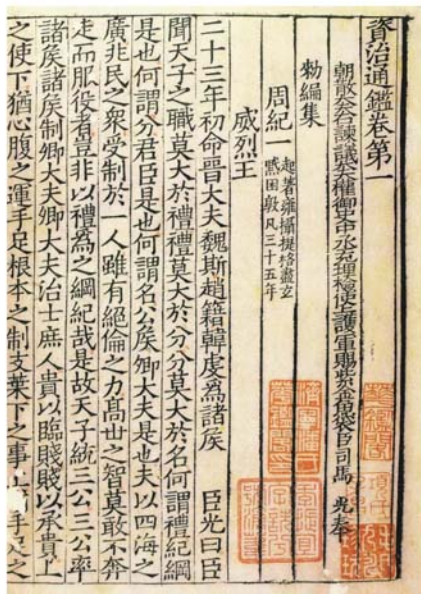 資治通鑑卷第一
朝散大夫右諫議大夫權御史中丞充理檢使上護軍賜紫金魚袋臣司馬 光奉
勑編集
周紀一
起著雍攝提格盡玄
黓困敦凡三十五年
威烈王
二十三年初命晉大夫魏斯趙籍韓虔爲諸侯 臣光曰臣
聞天子之職莫大於禮禮莫大於分分莫大於名何謂禮紀綱
是也何謂分君臣是也何謂名公侯卿大夫是也夫以四海之
廣兆民之衆受制於一人雖有絕倫之力高世之智莫敢不奔
走而服役者豈非以禮爲之綱紀哉是故天子統三公三公率
諸侯諸侯制卿大夫卿大夫治士庶人貴以臨賤賤以承貴上
之使下猶心腹之運手足根本之制支葉下之事上手足之